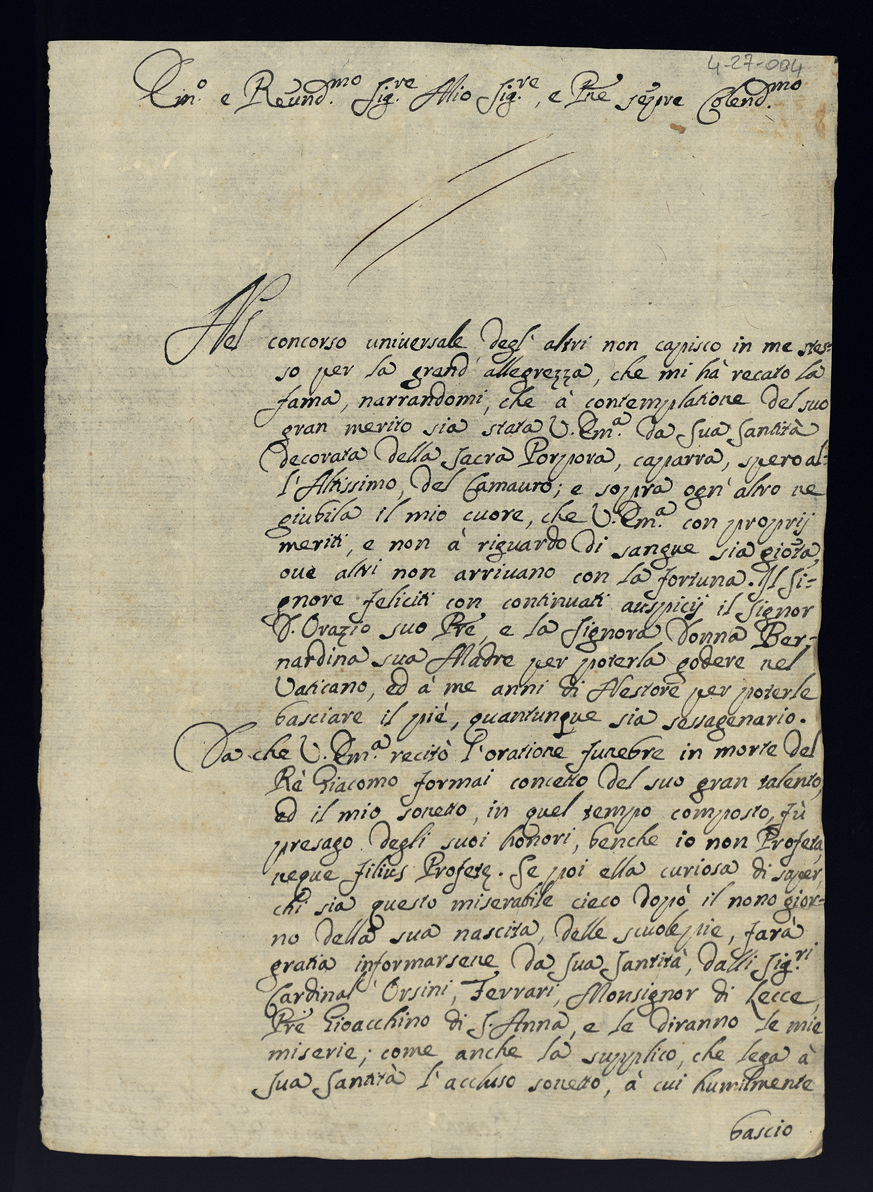 4-27-004
Em.º e Reuend.mo Sig.re Mio Sig.re, e Pñe sempre Colend.mo
Nel concorso uniuersale degl' altri non capisco in me stes=
so per la grand' allegrezza, che mi hà recato la
fama, narrandomi, che à contemplatione del suo
gran merito sia stata V. Em.ª da Sua Santità
decorata della Sacra Porpora, caparra, spero al=
l'Altissimo, del Camauro; e sopra ogn' altro ne
giubila il mio cuore, che V. Em.ª con proprij
meriti, e non à riguardo di sangue sia giota,
oue altri non arriuano con la fortuna. Il Si=
gnore feliciti con continuati auspicij il Signor
D. Orazio suo Pre, e la Signora Donna Ber=
nardina sua Madre per poterla godere nel
Vaticano, ed à me anni di Nestore per poterle
basciare il piè, quantunque sia sessagenario.
Da che V. Em.ª recitò l'oratione funebre in morte del
Rè Giacomo formai concetto del suo gran talento,
ed il mio sonetto, in quel tempo composto, fù
presago degli suoi honori, benche io non Profeta
neque filius Profetę. Se poi ella curiosa di saper,
chi sia questo miserabile cieco dopò il nono gior=
no della sua nascita, delle scuole pie, farà
gratia informarsene da Sua Santità, dalli Sig.ri
Cardinal' Orsini, Ferrari, Monsignor di Lecce,
Pre Gioacchino di S. Anna, e le diranno le mie
miserie; come anche la supplico, che lega à
Sua Santità l'accluso sonetto, à cui humilmente
bascio